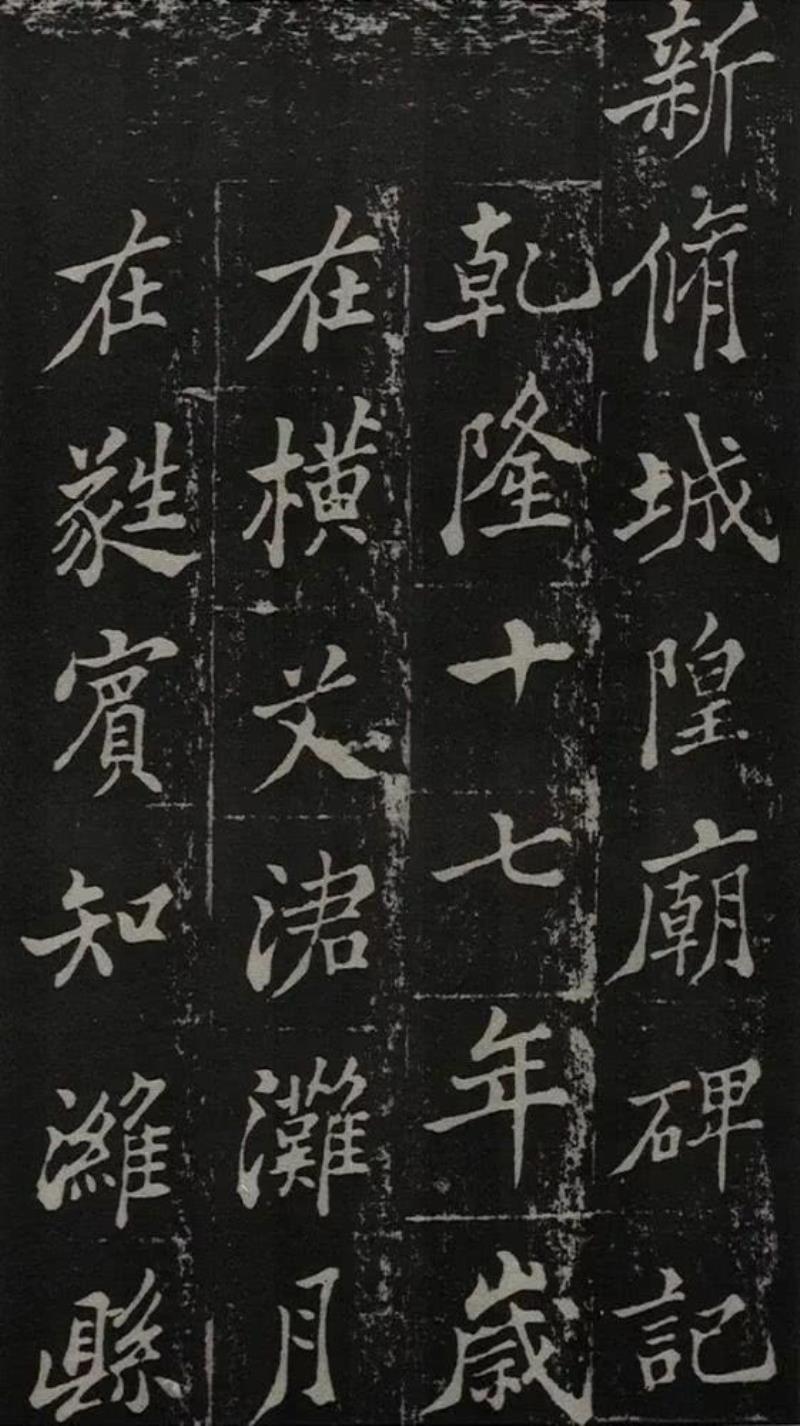 新脩城隍廟碑記
乾隆十七年歲
在橫艾涒灘月
在蕤賓知濰縣